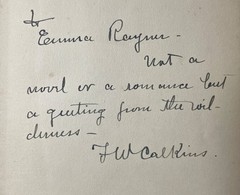 to
Emma Rayner -
Not a
novel or a romance but
a greeting from the wil-
derness -
F W Calkins.